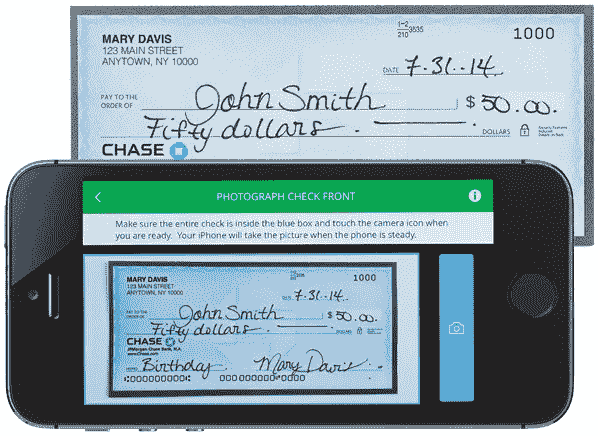 MARY DAVIS
123 MAIN STREET
ANYTOWN, NY 10000
1-2
210
3535
1000
DATE 7-31-14
PAY TO THE
ORDER OF John Smith $50.00.
Fifty dollars. DOLLARS
CHASE
PHOTOGRAPH CHECK FRONT
Make sure the entire check is inside the blue box and touch the camera icon when
you are ready. Your iPhone will take the picture when the phone is steady.
MARY DAVIS
123 MAIN STREET
ANYTOWN, NY 10000
1000
DATE 7-31-14
PAY TO THE
ORDER OF John Smith $50.00.
Fifty dollars. DOLLARS
CHASE
JPMorgan Chase Bank, N.A.
www.Chase.com
MEMO Birthday Mary Davis